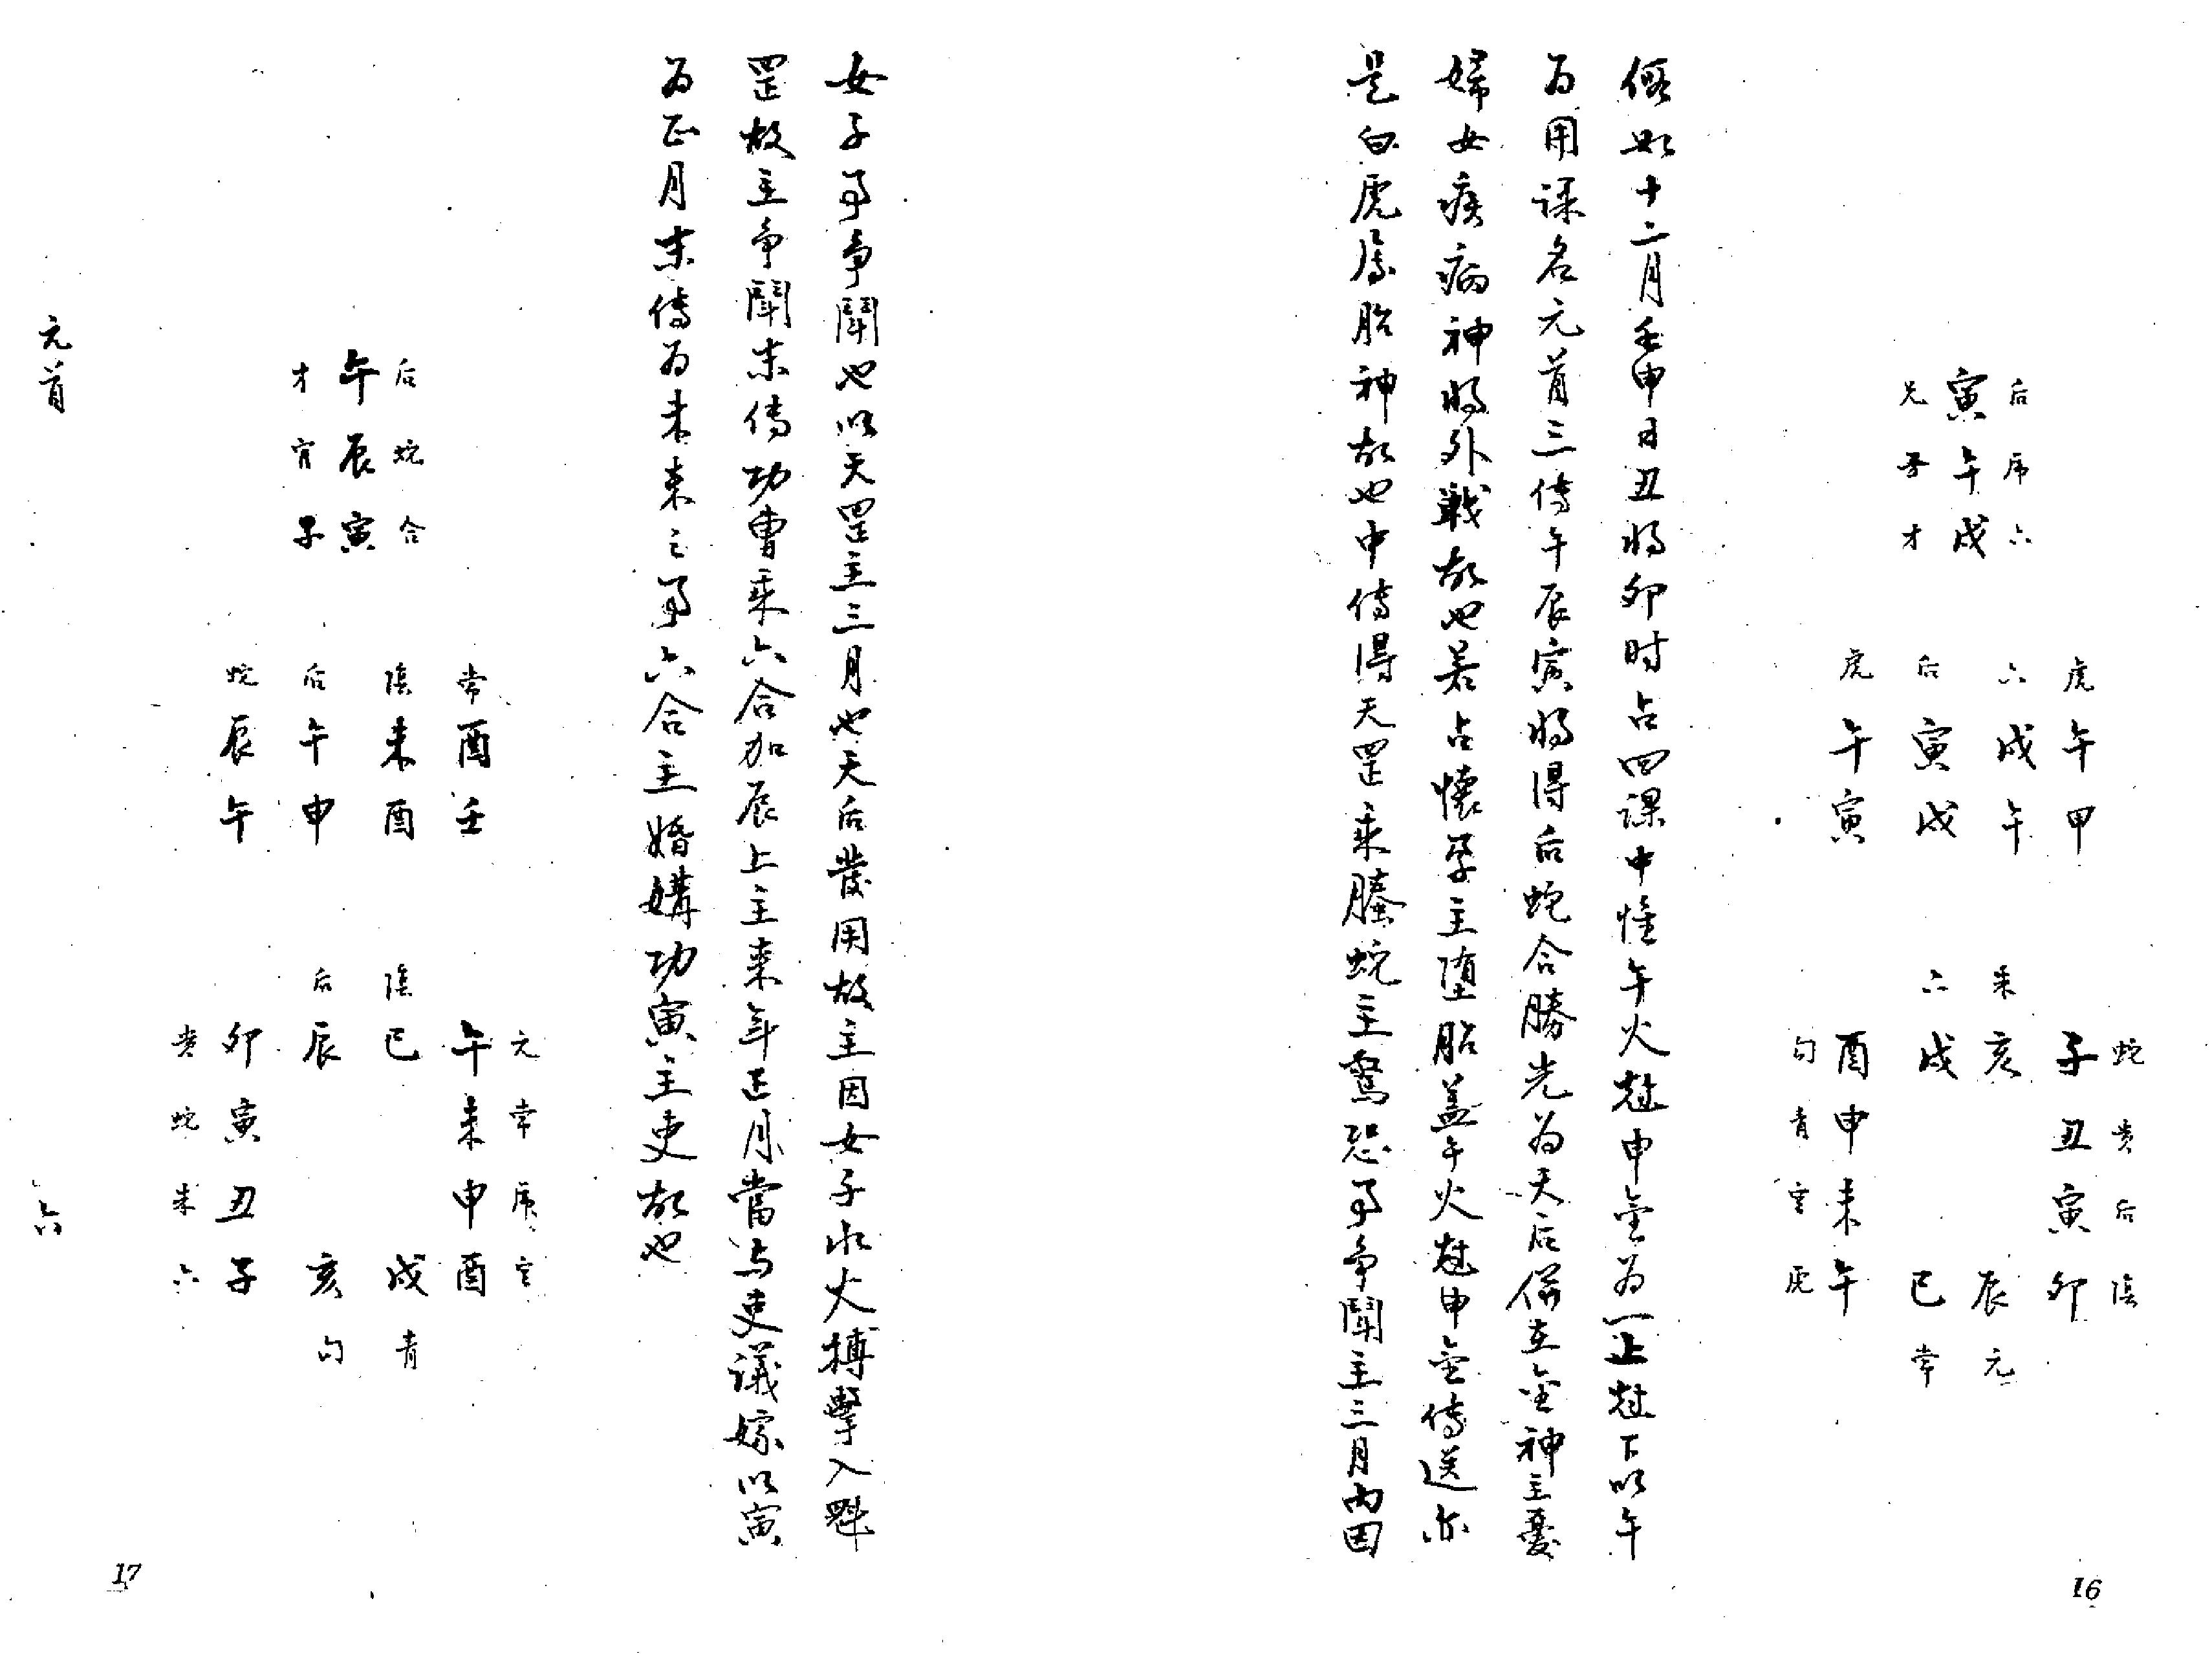 后 虎 六
寅 午 戌
兄 子 才
虎 六 后 虎
午 戌 寅 午
甲 午 戌 寅
蛇 貴 后 陰
子 丑 寅 卯
朱 亥 辰 元
六 戌 巳 常
酉 申 未 午
勾 青 空 虎
假如十二月壬申日丑將卯时占四課中惟午火尅申金为一上尅下以午
为用課名元首三传午辰寅將得后蛇合勝光为天后俱在金神主憂
婦女疾病神將外戰故也若占懷孕主堕胎蓋午火尅申金传送亦
是白虎屬胎神故也中传得天罡乘螣蛇主驚恐事争鬬主三月内因
16
女子事争鬬也以天罡主三月也天后發用故主因女子水火搏擊入魁
罡故主争鬬末传功曹乘六合加辰上主来年正月當与吏議嫁以寅
为正月末传为未来之事六合主婚媾功寅主吏故也
后 蛇 合
午 辰 寅
才 官 子
常 陰 后 蛇
酉 未 午 辰
壬 酉 申 午
元 常 虎 空
午 未 申 酉
陰 巳 戌 青
后 辰 亥 勾
卯 寅 丑 子
貴 蛇 朱 六
元首
六
17